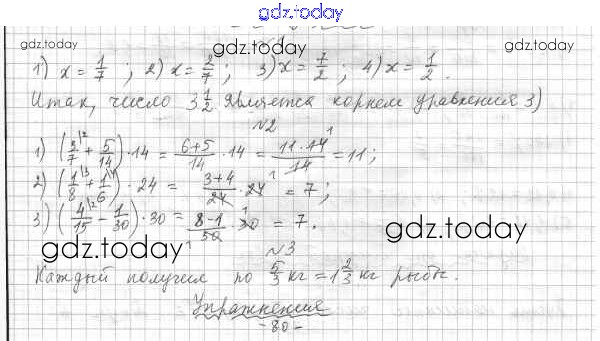 gdz.today
gdz.today gdz.today gdz.today
1) x = 1/7 ; 2) x = 2/7 ; 3) x = 7/2 ; 4) x = 1/2 .
Итак, число 3 1/2 является корнем уравнения 3)
№2
1) (3/7 + 5/14) · 14 = (6+5)/14 · 14 = (11 · 14)/14 = 11;
2) (1/8 + 1/6) · 24 = (3+4)/24 · 24 = 7;
3) (4/15 - 1/30) · 30 = (8-1)/30 · 30 = 7.
gdz.today gdz.today
№3
Каждый получил по 5/3 кг = 1 2/3 кг рыбы.
Упражнения
- 80 -